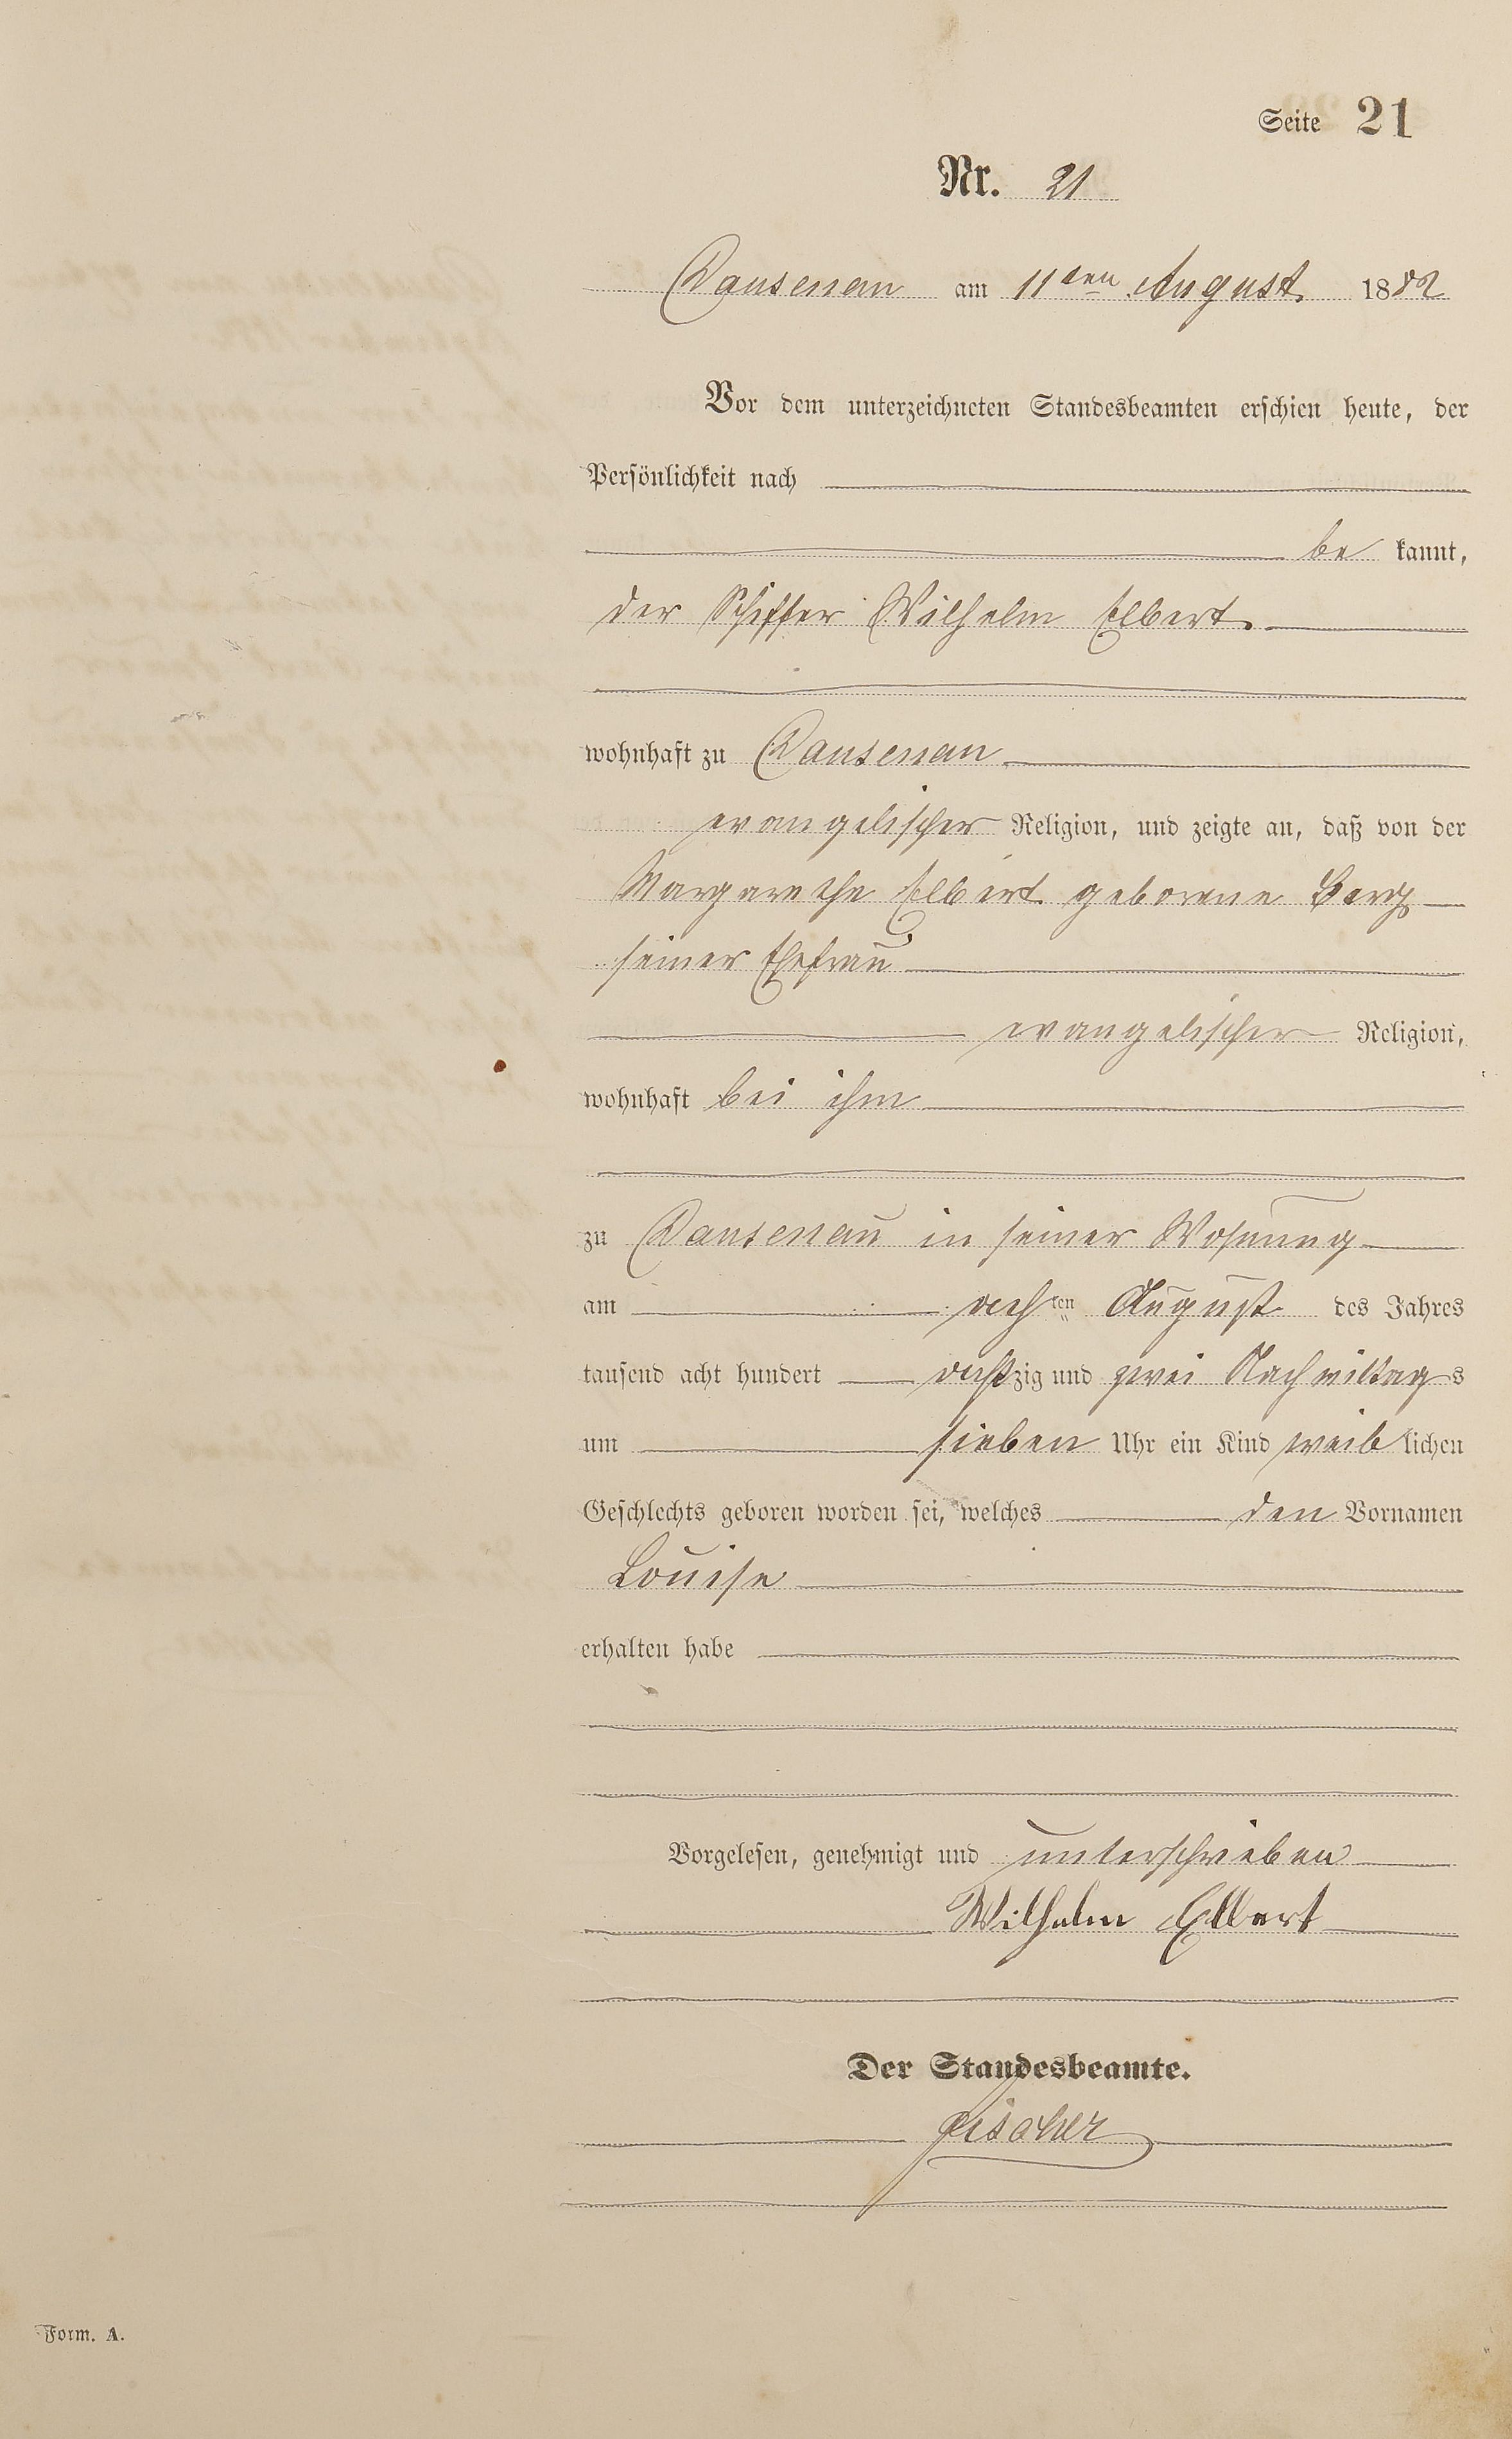 Seite 21
Nr. 21
Dausenau am 11ten August 1882
Vor dem unterzeichneten Standesbeamten erschien heute, der
Persönlichkeit nach
be kannt,
der Schiffer Wilhelm Elbert
wohnhaft zu Dausenau
evangelischer Religion, und zeigte an, daß von der
Margarethe Elbert geborene
seiner Ehefrau
evangelischer Religion,
wohnhaft bei ihm
zu Dausenau in seiner Wohnung
am achten August des Jahres
tausend acht hundert achtzig und zwei Nachmittags
um sieben Uhr ein Kind weiblichen
Geschlechts geboren worden sei, welches den Vornamen
Louise
erhalten habe
Vorgelesen, genehmigt und unterschrieben
Wilhelm Elbert
Der Standesbeamte.
Fischer
Form. A.